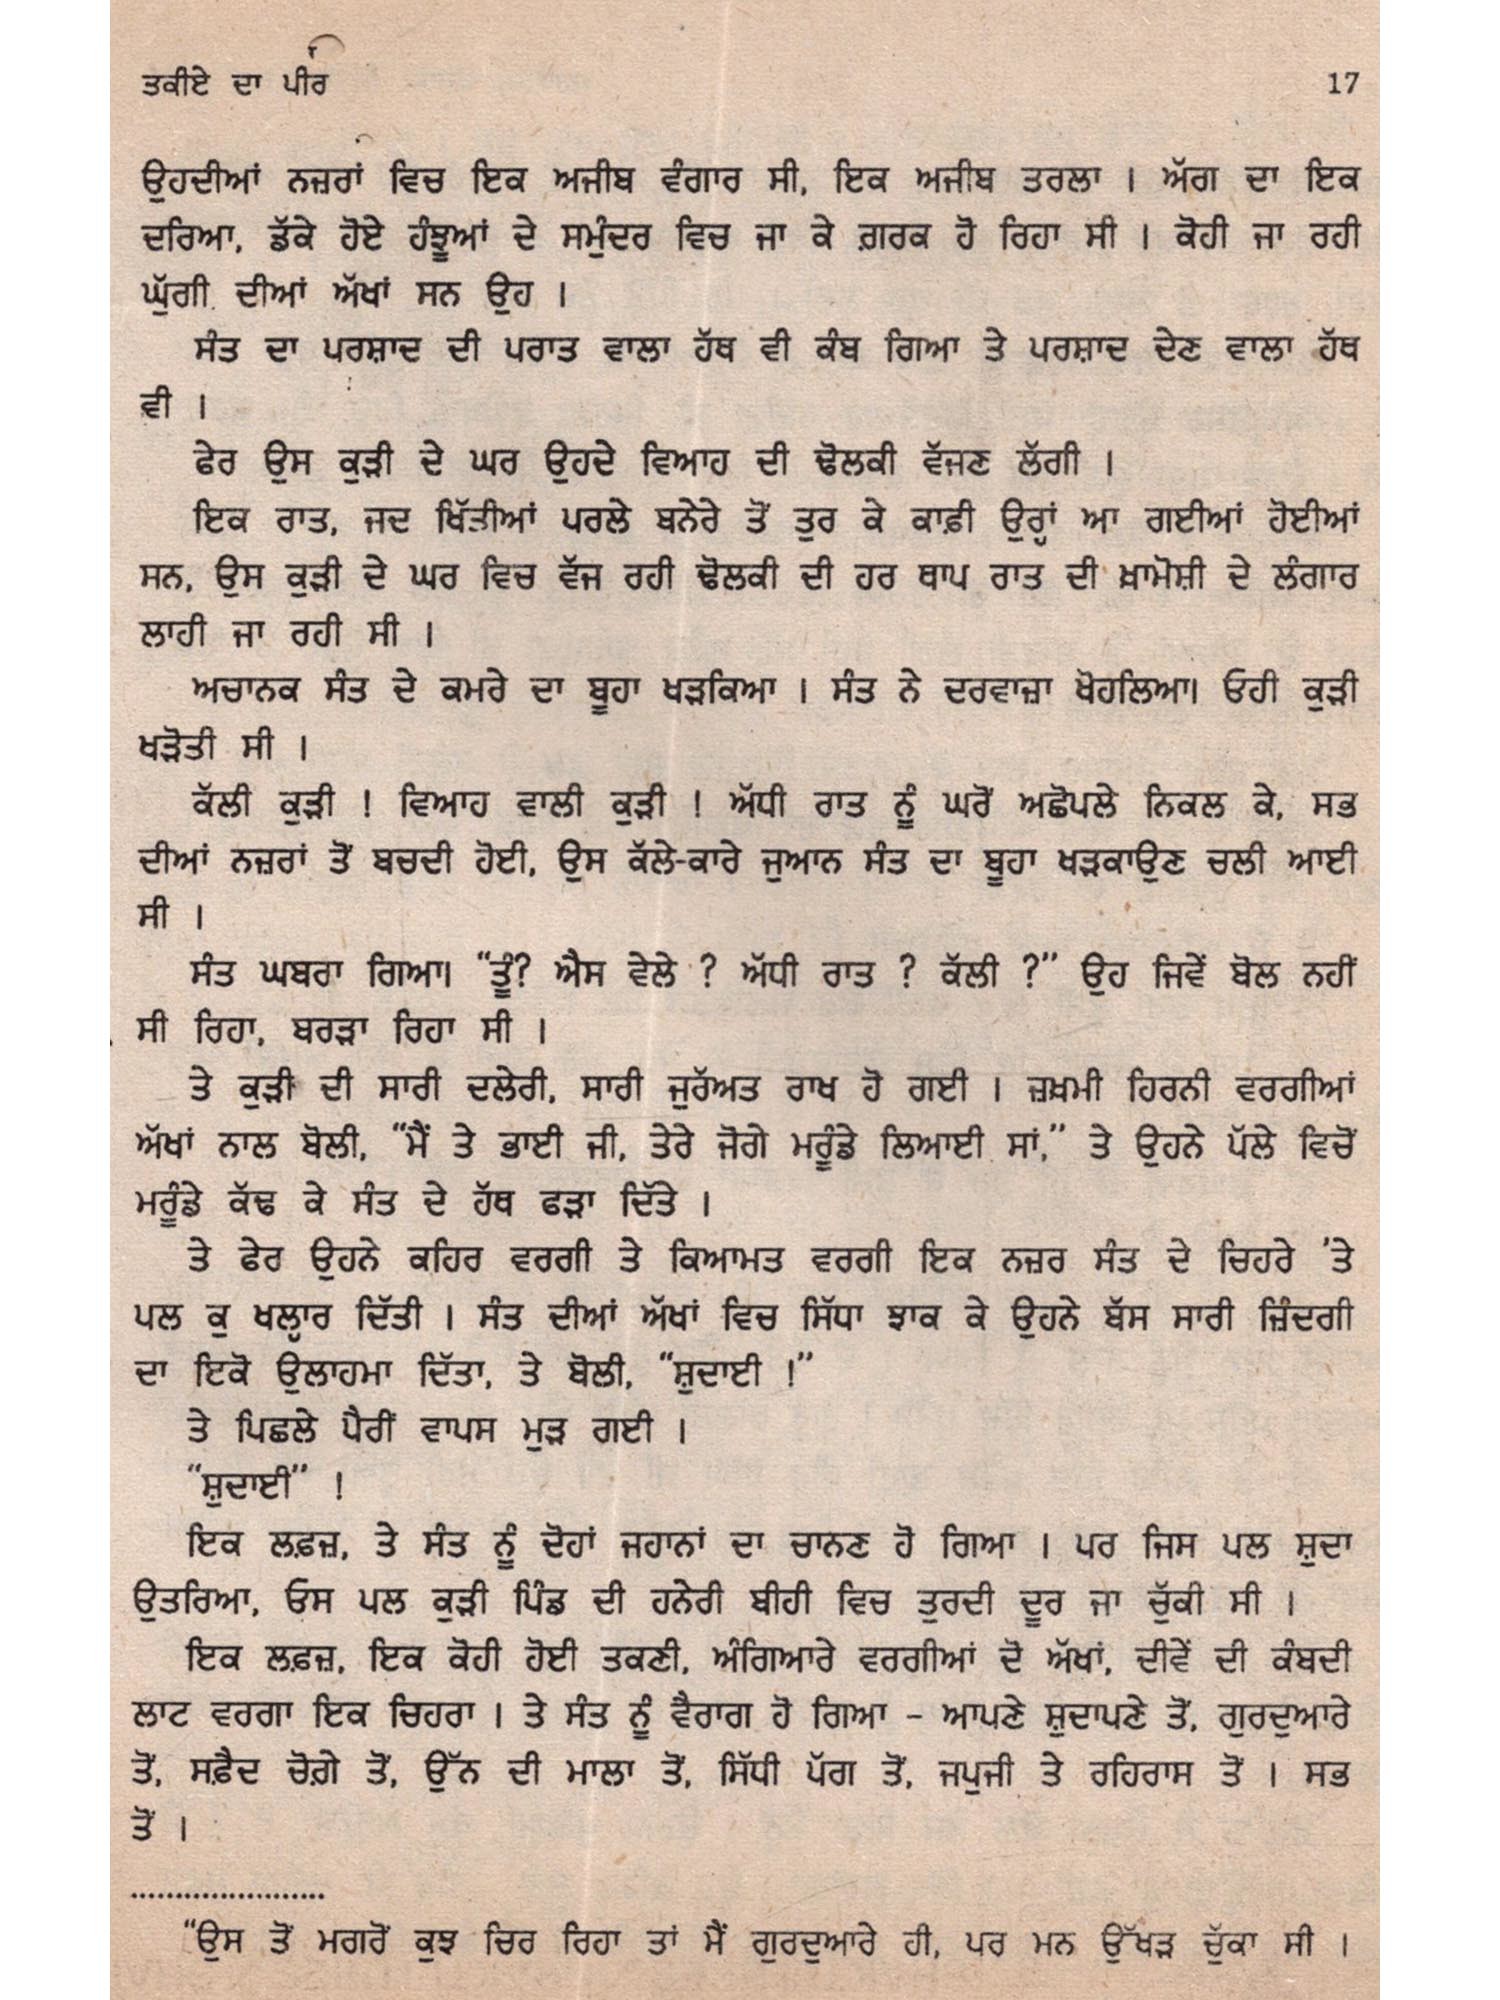 ਤਕੀਏ ਦਾ ਪੀਰ 17
ਉਹਦੀਆਂ ਨਜ਼ਰਾਂ ਵਿਚ ਇਕ ਅਜੀਬ ਵੰਗਾਰ ਸੀ, ਇਕ ਅਜੀਬ ਤਰਲਾ । ਅੱਗ ਦਾ ਇਕ
ਦਰਿਆ, ਡੱਕੇ ਹੋਏ ਹੰਝੂਆਂ ਦੇ ਸਮੁੰਦਰ ਵਿਚ ਜਾ ਕੇ ਗ਼ਰਕ ਹੋ ਰਿਹਾ ਸੀ । ਕੋਹੀ ਜਾ ਰਹੀ
ਘੁੱਗੀ ਦੀਆਂ ਅੱਖਾਂ ਸਨ ਉਹ ।
ਸੰਤ ਦਾ ਪਰਸ਼ਾਦ ਦੀ ਪਰਾਤ ਵਾਲਾ ਹੱਥ ਵੀ ਕੰਬ ਗਿਆ ਤੇ ਪਰਸ਼ਾਦ ਦੇਣ ਵਾਲਾ ਹੱਥ
ਵੀ ।
ਫੇਰ ਉਸ ਕੁੜੀ ਦੇ ਘਰ ਉਹਦੇ ਵਿਆਹ ਦੀ ਢੋਲਕੀ ਵੱਜਣ ਲੱਗੀ ।
ਇਕ ਰਾਤ, ਜਦ ਖਿੱਤੀਆਂ ਪਰਲੇ ਬਨੇਰੇ ਤੋਂ ਤੁਰ ਕੇ ਕਾਫ਼ੀ ਉਰ੍ਹਾਂ ਆ ਗਈਆਂ ਹੋਈਆਂ
ਸਨ, ਉਸ ਕੁੜੀ ਦੇ ਘਰ ਵਿਚ ਵੱਜ ਰਹੀ ਢੋਲਕੀ ਦੀ ਹਰ ਥਾਪ ਰਾਤ ਦੀ ਖ਼ਾਮੋਸ਼ੀ ਦੇ ਲੰਗਾਰ
ਲਾਹੀ ਜਾ ਰਹੀ ਸੀ ।
ਅਚਾਨਕ ਸੰਤ ਦੇ ਕਮਰੇ ਦਾ ਬੂਹਾ ਖੜਕਿਆ । ਸੰਤ ਨੇ ਦਰਵਾਜ਼ਾ ਖੋਹਲਿਆ। ਓਹੀ ਕੁੜੀ
ਖੜੋਤੀ ਸੀ ।
ਕੱਲੀ ਕੁੜੀ ! ਵਿਆਹ ਵਾਲੀ ਕੁੜੀ ! ਅੱਧੀ ਰਾਤ ਨੂੰ ਘਰੋਂ ਅਛੋਪਲੇ ਨਿਕਲ ਕੇ, ਸਭ
ਦੀਆਂ ਨਜ਼ਰਾਂ ਤੋਂ ਬਚਦੀ ਹੋਈ, ਉਸ ਕੱਲੇ-ਕਾਰੇ ਜੁਆਨ ਸੰਤ ਦਾ ਬੂਹਾ ਖੜਕਾਉਣ ਚਲੀ ਆਈ
ਸੀ ।
ਸੰਤ ਘਬਰਾ ਗਿਆ। “ਤੂੰ? ਐਸ ਵੇਲੇ ? ਅੱਧੀ ਰਾਤ ? ਕੱਲੀ ?” ਉਹ ਜਿਵੇਂ ਬੋਲ ਨਹੀਂ
ਸੀ ਰਿਹਾ, ਬਰੜਾ ਰਿਹਾ ਸੀ ।
ਤੇ ਕੁੜੀ ਦੀ ਸਾਰੀ ਦਲੇਰੀ, ਸਾਰੀ ਜੁਰੱਅਤ ਰਾਖ ਹੋ ਗਈ । ਜ਼ਖ਼ਮੀ ਹਿਰਨੀ ਵਰਗੀਆਂ
ਅੱਖਾਂ ਨਾਲ ਬੋਲੀ, “ਮੈਂ ਤੇ ਭਾਈ ਜੀ, ਤੇਰੇ ਜੋਗੇ ਮਰੂੰਡੇ ਲਿਆਈ ਸਾਂ,” ਤੇ ਉਹਨੇ ਪੱਲੇ ਵਿਚੋਂ
ਮਰੂੰਡੇ ਕੱਢ ਕੇ ਸੰਤ ਦੇ ਹੱਥ ਫੜਾ ਦਿੱਤੇ ।
ਤੇ ਫੇਰ ਉਹਨੇ ਕਹਿਰ ਵਰਗੀ ਤੇ ਕਿਆਮਤ ਵਰਗੀ ਇਕ ਨਜ਼ਰ ਸੰਤ ਦੇ ਚਿਹਰੇ ’ਤੇ
ਪਲ ਕੁ ਖਲ੍ਹਾਰ ਦਿੱਤੀ । ਸੰਤ ਦੀਆਂ ਅੱਖਾਂ ਵਿਚ ਸਿੱਧਾ ਝਾਕ ਕੇ ਉਹਨੇ ਬੱਸ ਸਾਰੀ ਜ਼ਿੰਦਗੀ
ਦਾ ਇਕੋ ਉਲਾਹਮਾ ਦਿੱਤਾ, ਤੇ ਬੋਲੀ, “ਸ਼ੁਦਾਈ !”
ਤੇ ਪਿਛਲੇ ਪੈਰੀਂ ਵਾਪਸ ਮੁੜ ਗਈ ।
“ਸ਼ੁਦਾਈ” !
ਇਕ ਲਫ਼ਜ਼, ਤੇ ਸੰਤ ਨੂੰ ਦੋਹਾਂ ਜਹਾਨਾਂ ਦਾ ਚਾਨਣ ਹੋ ਗਿਆ । ਪਰ ਜਿਸ ਪਲ ਸ਼ੁਦਾ
ਉਤਰਿਆ, ਓਸ ਪਲ ਕੁੜੀ ਪਿੰਡ ਦੀ ਹਨੇਰੀ ਬੀਹੀ ਵਿਚ ਤੁਰਦੀ ਦੂਰ ਜਾ ਚੁੱਕੀ ਸੀ ।
ਇਕ ਲਫ਼ਜ਼, ਇਕ ਕੋਹੀ ਹੋਈ ਤਕਣੀ, ਅੰਗਿਆਰੇ ਵਰਗੀਆਂ ਦੋ ਅੱਖਾਂ, ਦੀਵੇਂ ਦੀ ਕੰਬਦੀ
ਲਾਟ ਵਰਗਾ ਇਕ ਚਿਹਰਾ । ਤੇ ਸੰਤ ਨੂੰ ਵੈਰਾਗ ਹੋ ਗਿਆ – ਆਪਣੇ ਸ਼ੁਦਾਪਣੇ ਤੋਂ, ਗੁਰਦੁਆਰੇ
ਤੋਂ, ਸਫ਼ੈਦ ਚੋਗ਼ੇ ਤੋਂ, ਉੱਨ ਦੀ ਮਾਲਾ ਤੋਂ, ਸਿੱਧੀ ਪੱਗ ਤੋਂ, ਜਪੁਜੀ ਤੇ ਰਹਿਰਾਸ ਤੋਂ । ਸਭ
ਤੋਂ ।
......................
“ਉਸ ਤੋਂ ਮਗਰੋਂ ਕੁਝ ਚਿਰ ਰਿਹਾ ਤਾਂ ਮੈਂ ਗੁਰਦੁਆਰੇ ਹੀ, ਪਰ ਮਨ ਉੱਖੜ ਚੁੱਕਾ ਸੀ ।